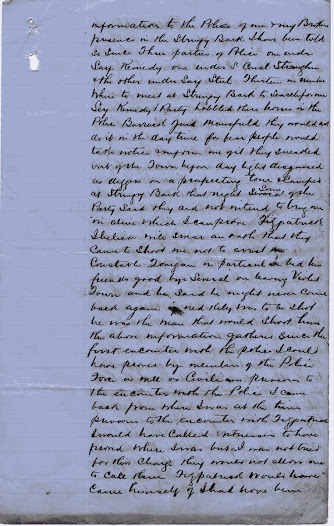 information to the Police of me & my Brothers
presence in the Stringy Bark I have been told
so Since Three parties of Police one under
Sergt Kenedy one under S Const Strachan
& the other under Sergt Steel Thirteen in number
Where to meet at Stringy Bark to Search for me
Sergt Kenedy & Party hobbled there horses in the
Police Barrack Yard Mansfield they would not
do it in the day time for fear people would
take notice & inform me yet they Sneaked
out of the Town before day light disguised
as diggers on a prospecting tour & camped
at Stringy Bark that night Some of the
Party Said they did not intend to bring me
in alive Which I can prove Fitzpatrick
I believe will Swear an oath that they
Came to Shoot me not to arrest me
Constable Lonigan in particular bid his
friends good bye Several on leaving Violet
Town and he Said he might never Come
back again Ned Kelly was to be Shot
he was the man that would Shoot him
the above information gathered Since the
first encounter with the police I could
have proved by members of the Police
Force as well as Civilians previous to
the encounter with the Police I came
back from where I was at the time
previous to the encounter with Fitzpatrick
I would have Called Witnesses to have
proved Where I was but I was not tried
for this Charge they would not allow me
to Call them Fitzpatrick Would have
Came himself if I had have been